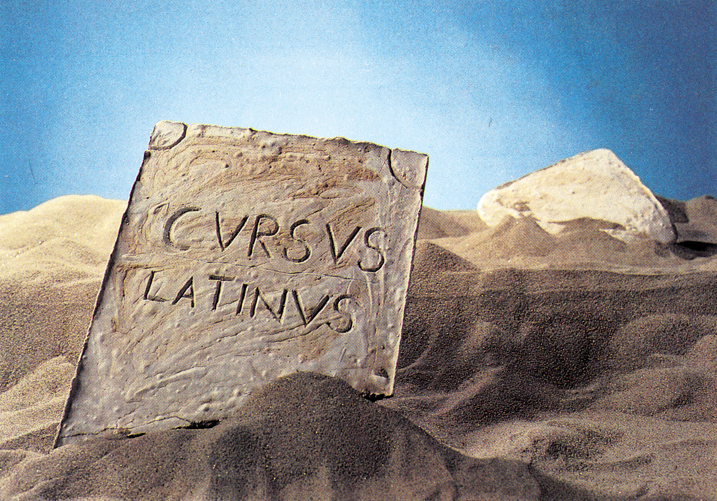 CVRSVS
LATINVS